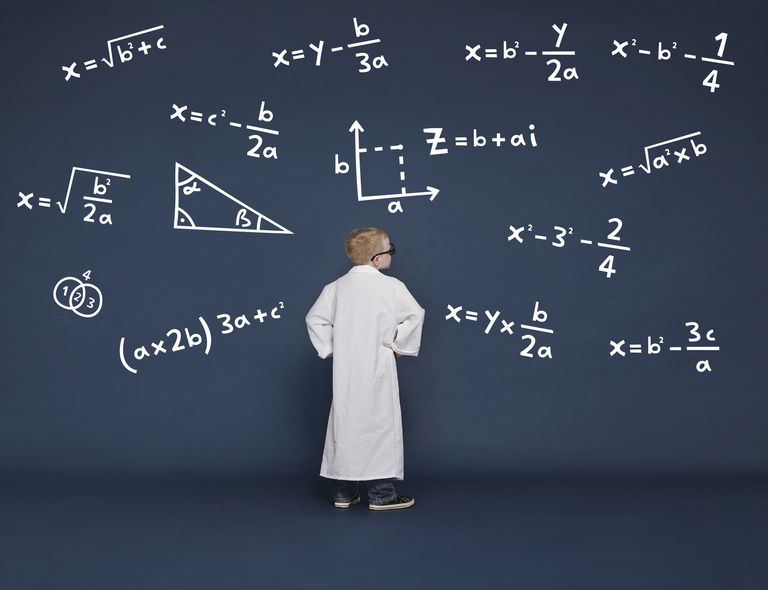 x = √(b² + c)
x = y - b/3a
x = b² - y/2a
x² - b² - 1/4
x = c² - b/2a
z = b + ai
b
a
x = √(a² x b)
x = √(b²/2a)
α
β
x² - 3² - 2/4
4
1 2 3
(ax2b)^(3a + c²)
x = y x b/2a
x = b² - 3c/a